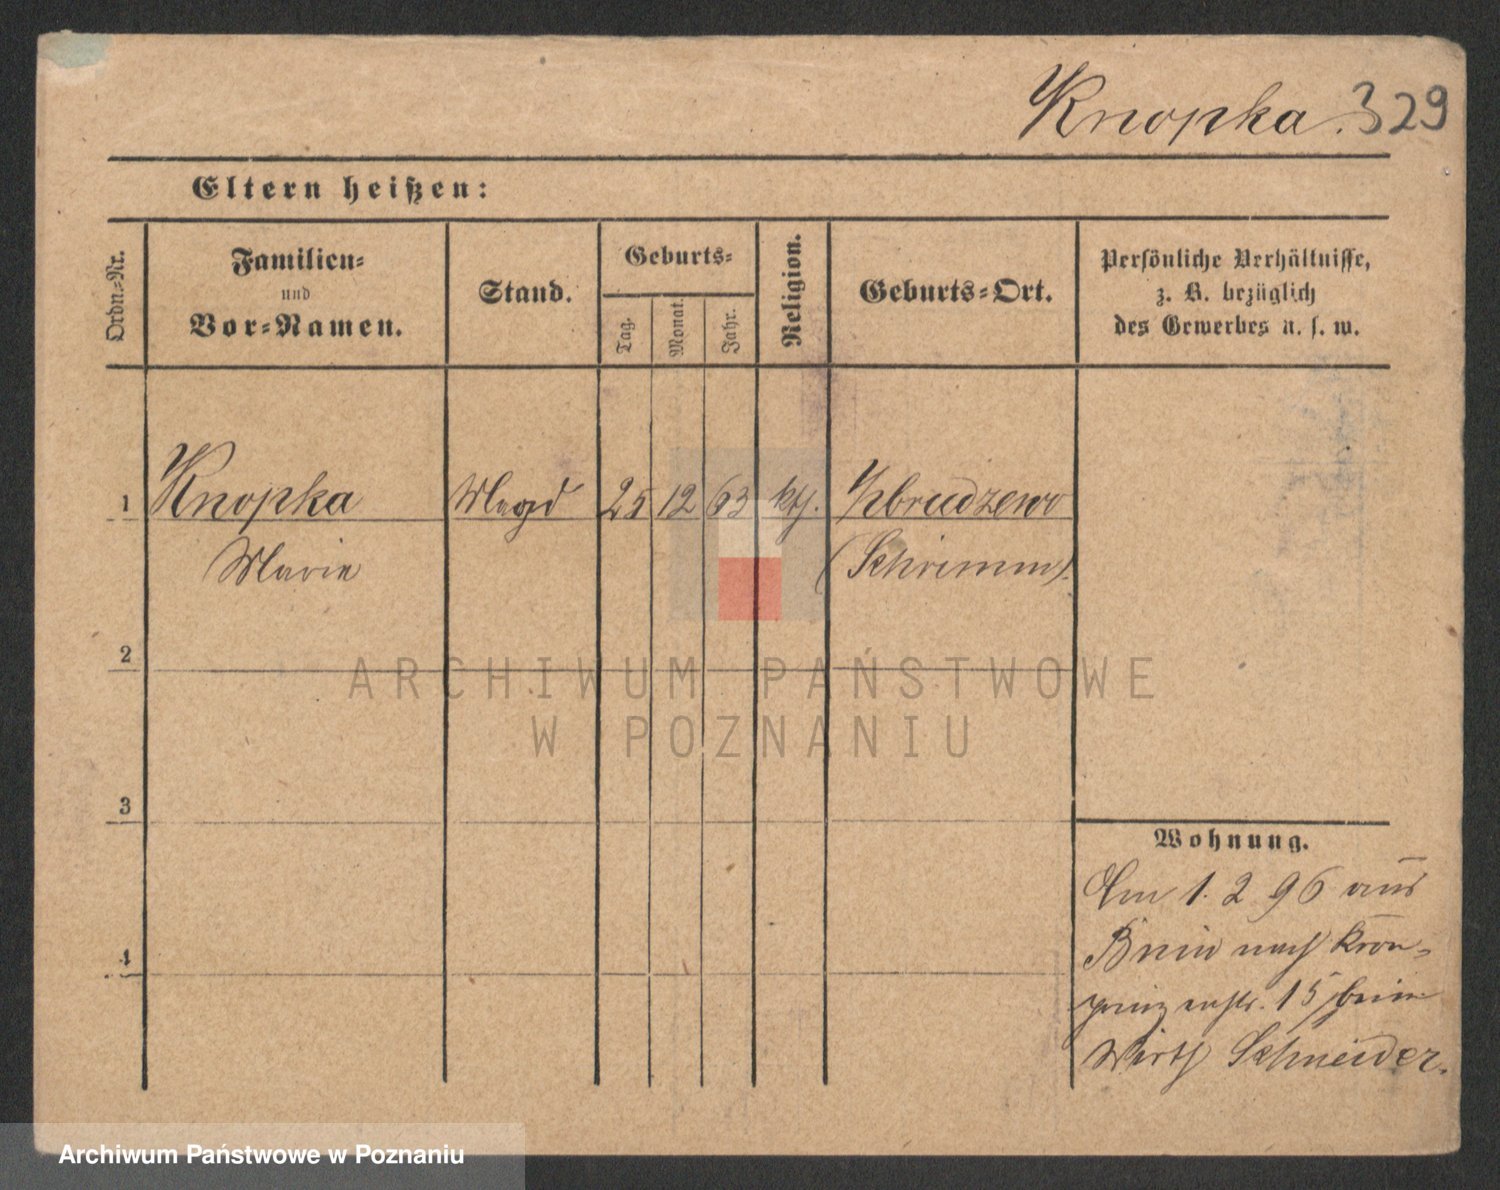 Knopka. 329
Eltern heißen:
Ordn.-Nr.
Familien-
und
Vor-Namen.
Stand.
Geburts-
Tag.
Monat.
Jahr.
Religion.
Geburts-Ort.
Persönliche Verhältnisse,
z. B. bezüglich
des Gewerbes u. s. w.
1 Knopka Magd 25 12 63 kth. Zbrudzewo
Marie (Schrimm).
2
3
4
Wohnung.
Am 1. 2 96 aus
Bnin nach Kron-
prinzenstr. 15 beim
Wirth Schneider.
ARCHIWUM PAŃSTWOWE
W POZNANIU
Archiwum Państwowe w Poznaniu